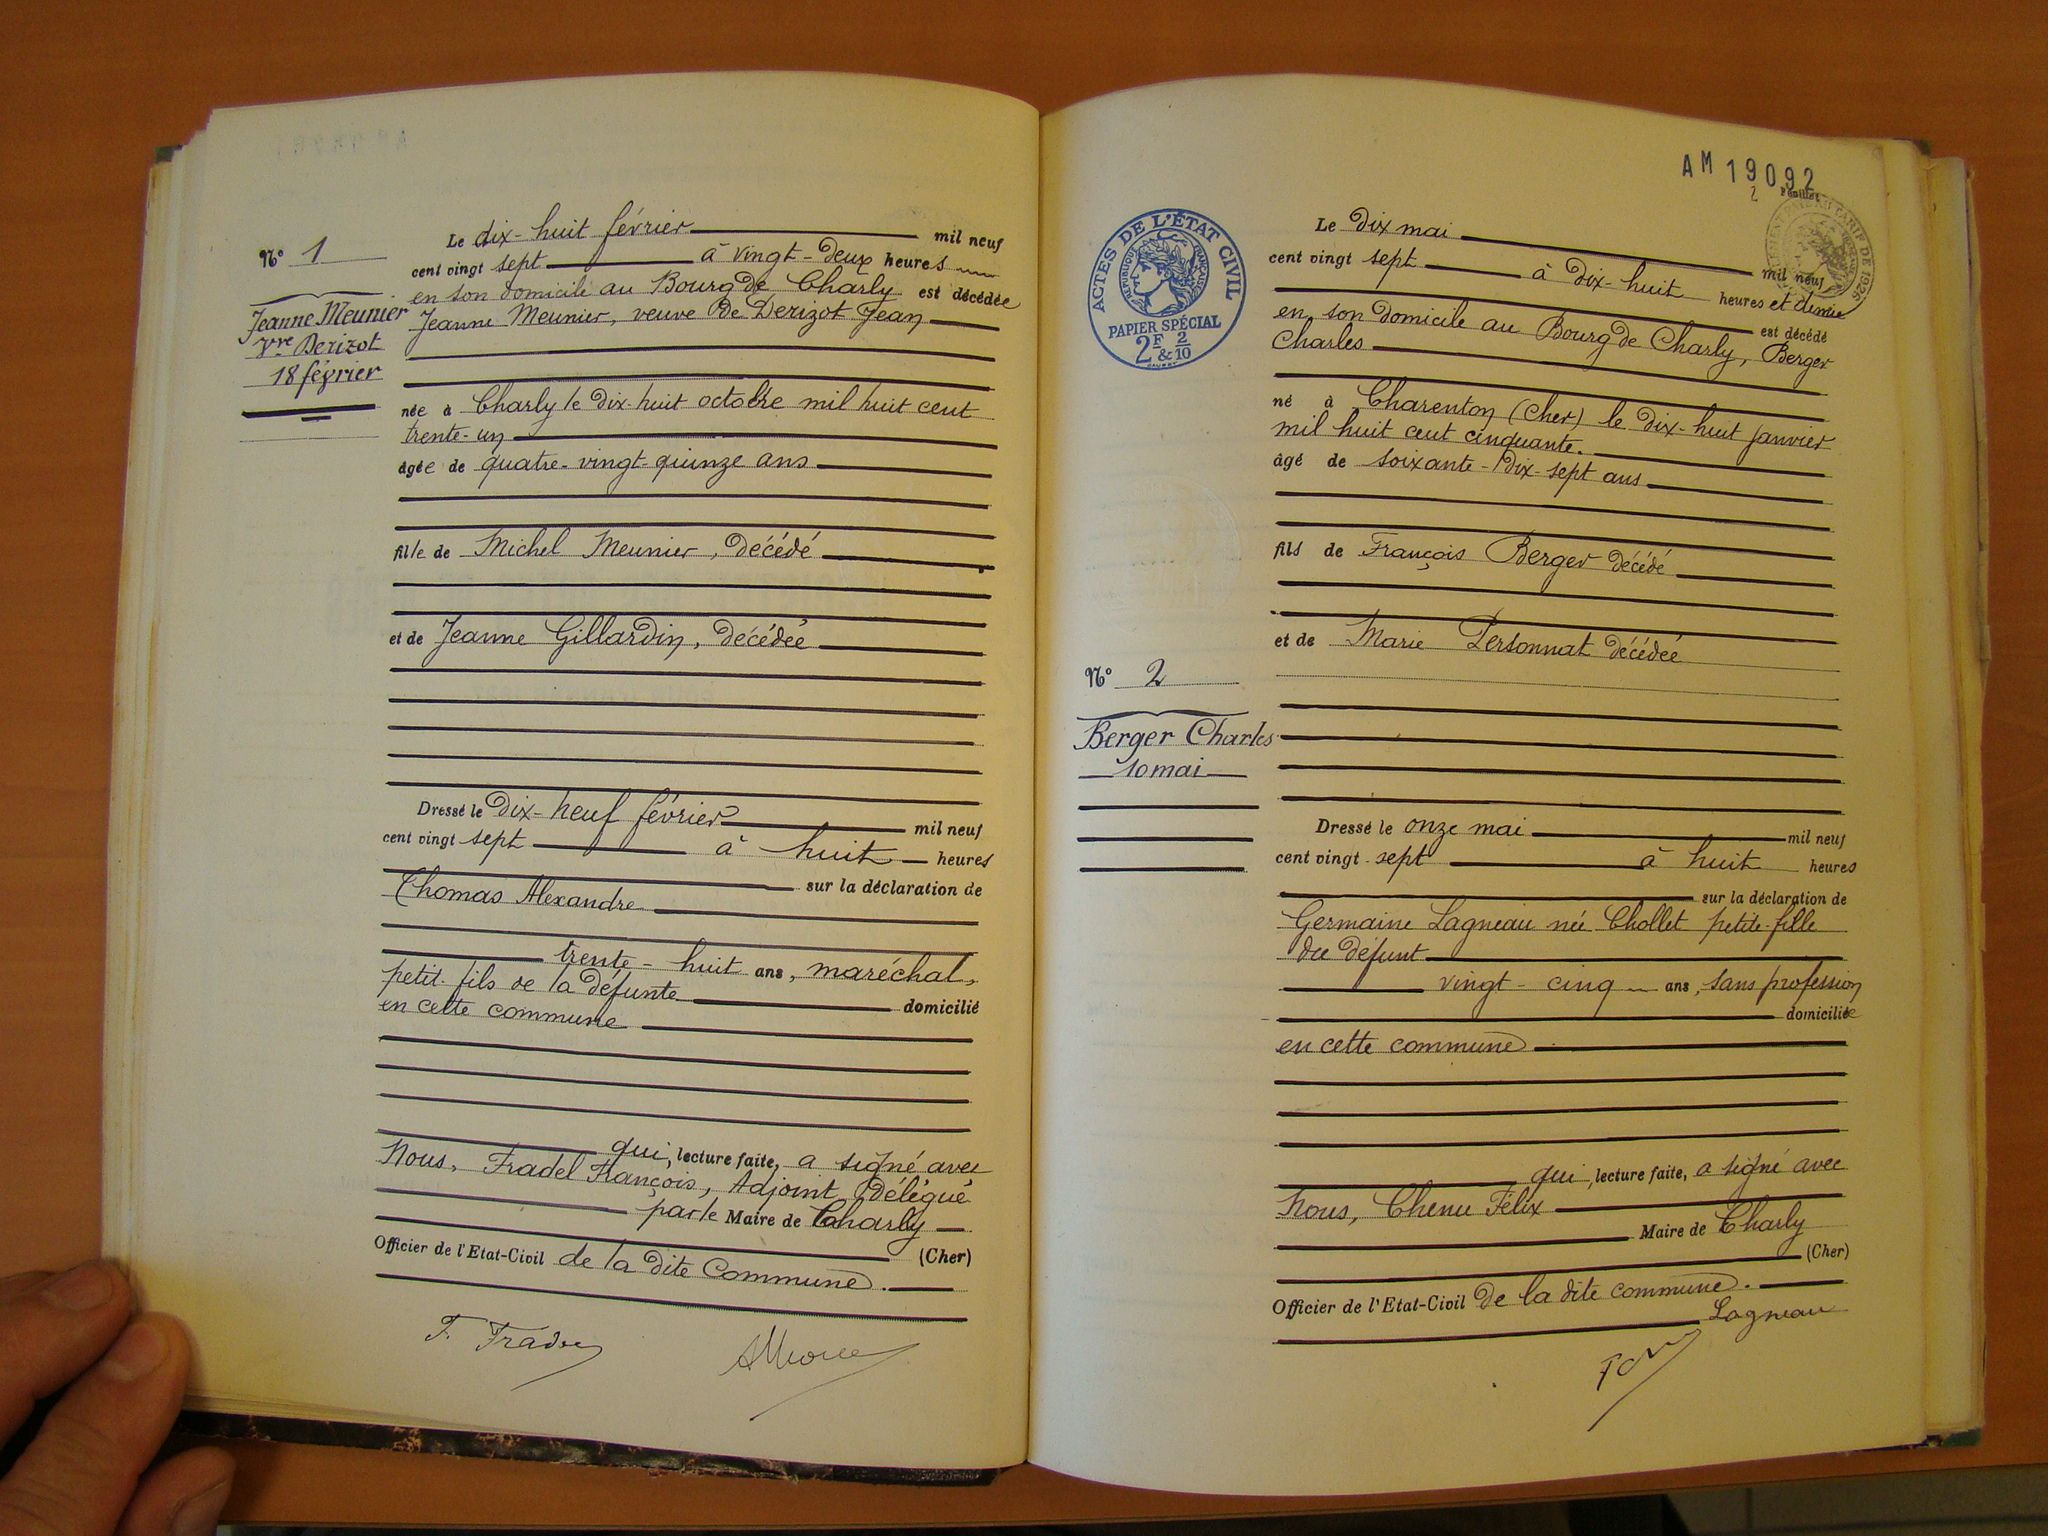 Nº 1
Jeanne Meunier
Vve Derizot
18 février
Le dix-huit février mil neuf
cent vingt sept à vingt-deux heures
en son domicile au Bourg de Charly est décédée
Jeanne Meunier, veuve de Derizot Jean
née à Charly le dix-huit octobre mil huit cent
trente-un
âgée de quatre-vingt-quinze ans
fille de Michel Meunier, décédé
et de Jeanne Gillardin, décédée
Dressé le dix-neuf février mil neuf
cent vingt sept à huit heures
sur la déclaration de
Thomas Alexandre
trente-huit ans, maréchal,
petit-fils de la défunte domicilié
en cette commune
qui, lecture faite, a signé avec
Nous, Fradel François, Adjoint délégué
par le Maire de Charly
(Cher)
Officier de l'Etat-Civil de la dite Commune.
AM 19092
Feuillet
2
ACTES DE L'ÉTAT CIVIL
RÉPUBLIQUE FRANÇAISE
PAPIER SPÉCIAL
2F & 2/10
TARIF DE 1926
Le dix mai mil neuf
cent vingt sept à dix-huit heures et demie
en son domicile au Bourg de Charly, Berger est décédé
Charles
né à Charenton (Cher) le dix-huit janvier
mil huit cent cinquante.
âgé de soixante-dix-sept ans
fils de François Berger décédé
et de Marie Personnat décédée
Nº 2
Berger Charles
10 mai
Dressé le onze mai mil neuf
cent vingt sept à huit heures
sur la déclaration de
Germaine Lagneau née Chollet petite-fille
du défunt
vingt-cinq ans, sans profession
domiciliée
en cette commune
qui, lecture faite, a signé avec
Nous, Chenu Félix
Maire de Charly
(Cher)
Officier de l'Etat-Civil de la dite commune.
Lagneau